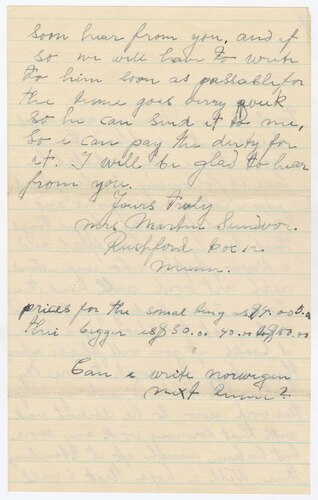 soon hear from you, and if
so we will have to write
to him soon as passable for
the time goes very qvik
so he can send it to me,
so i can pay the duty for
it. I will be glad to hear
from you.
Yours Truly
Mrs Martin Sundvor.
Rushford Box 12.
Minn.
prices for the small Ring is $4.00 5.00
the bigger is $30.00 40.00
Can i write norwegen
next time?